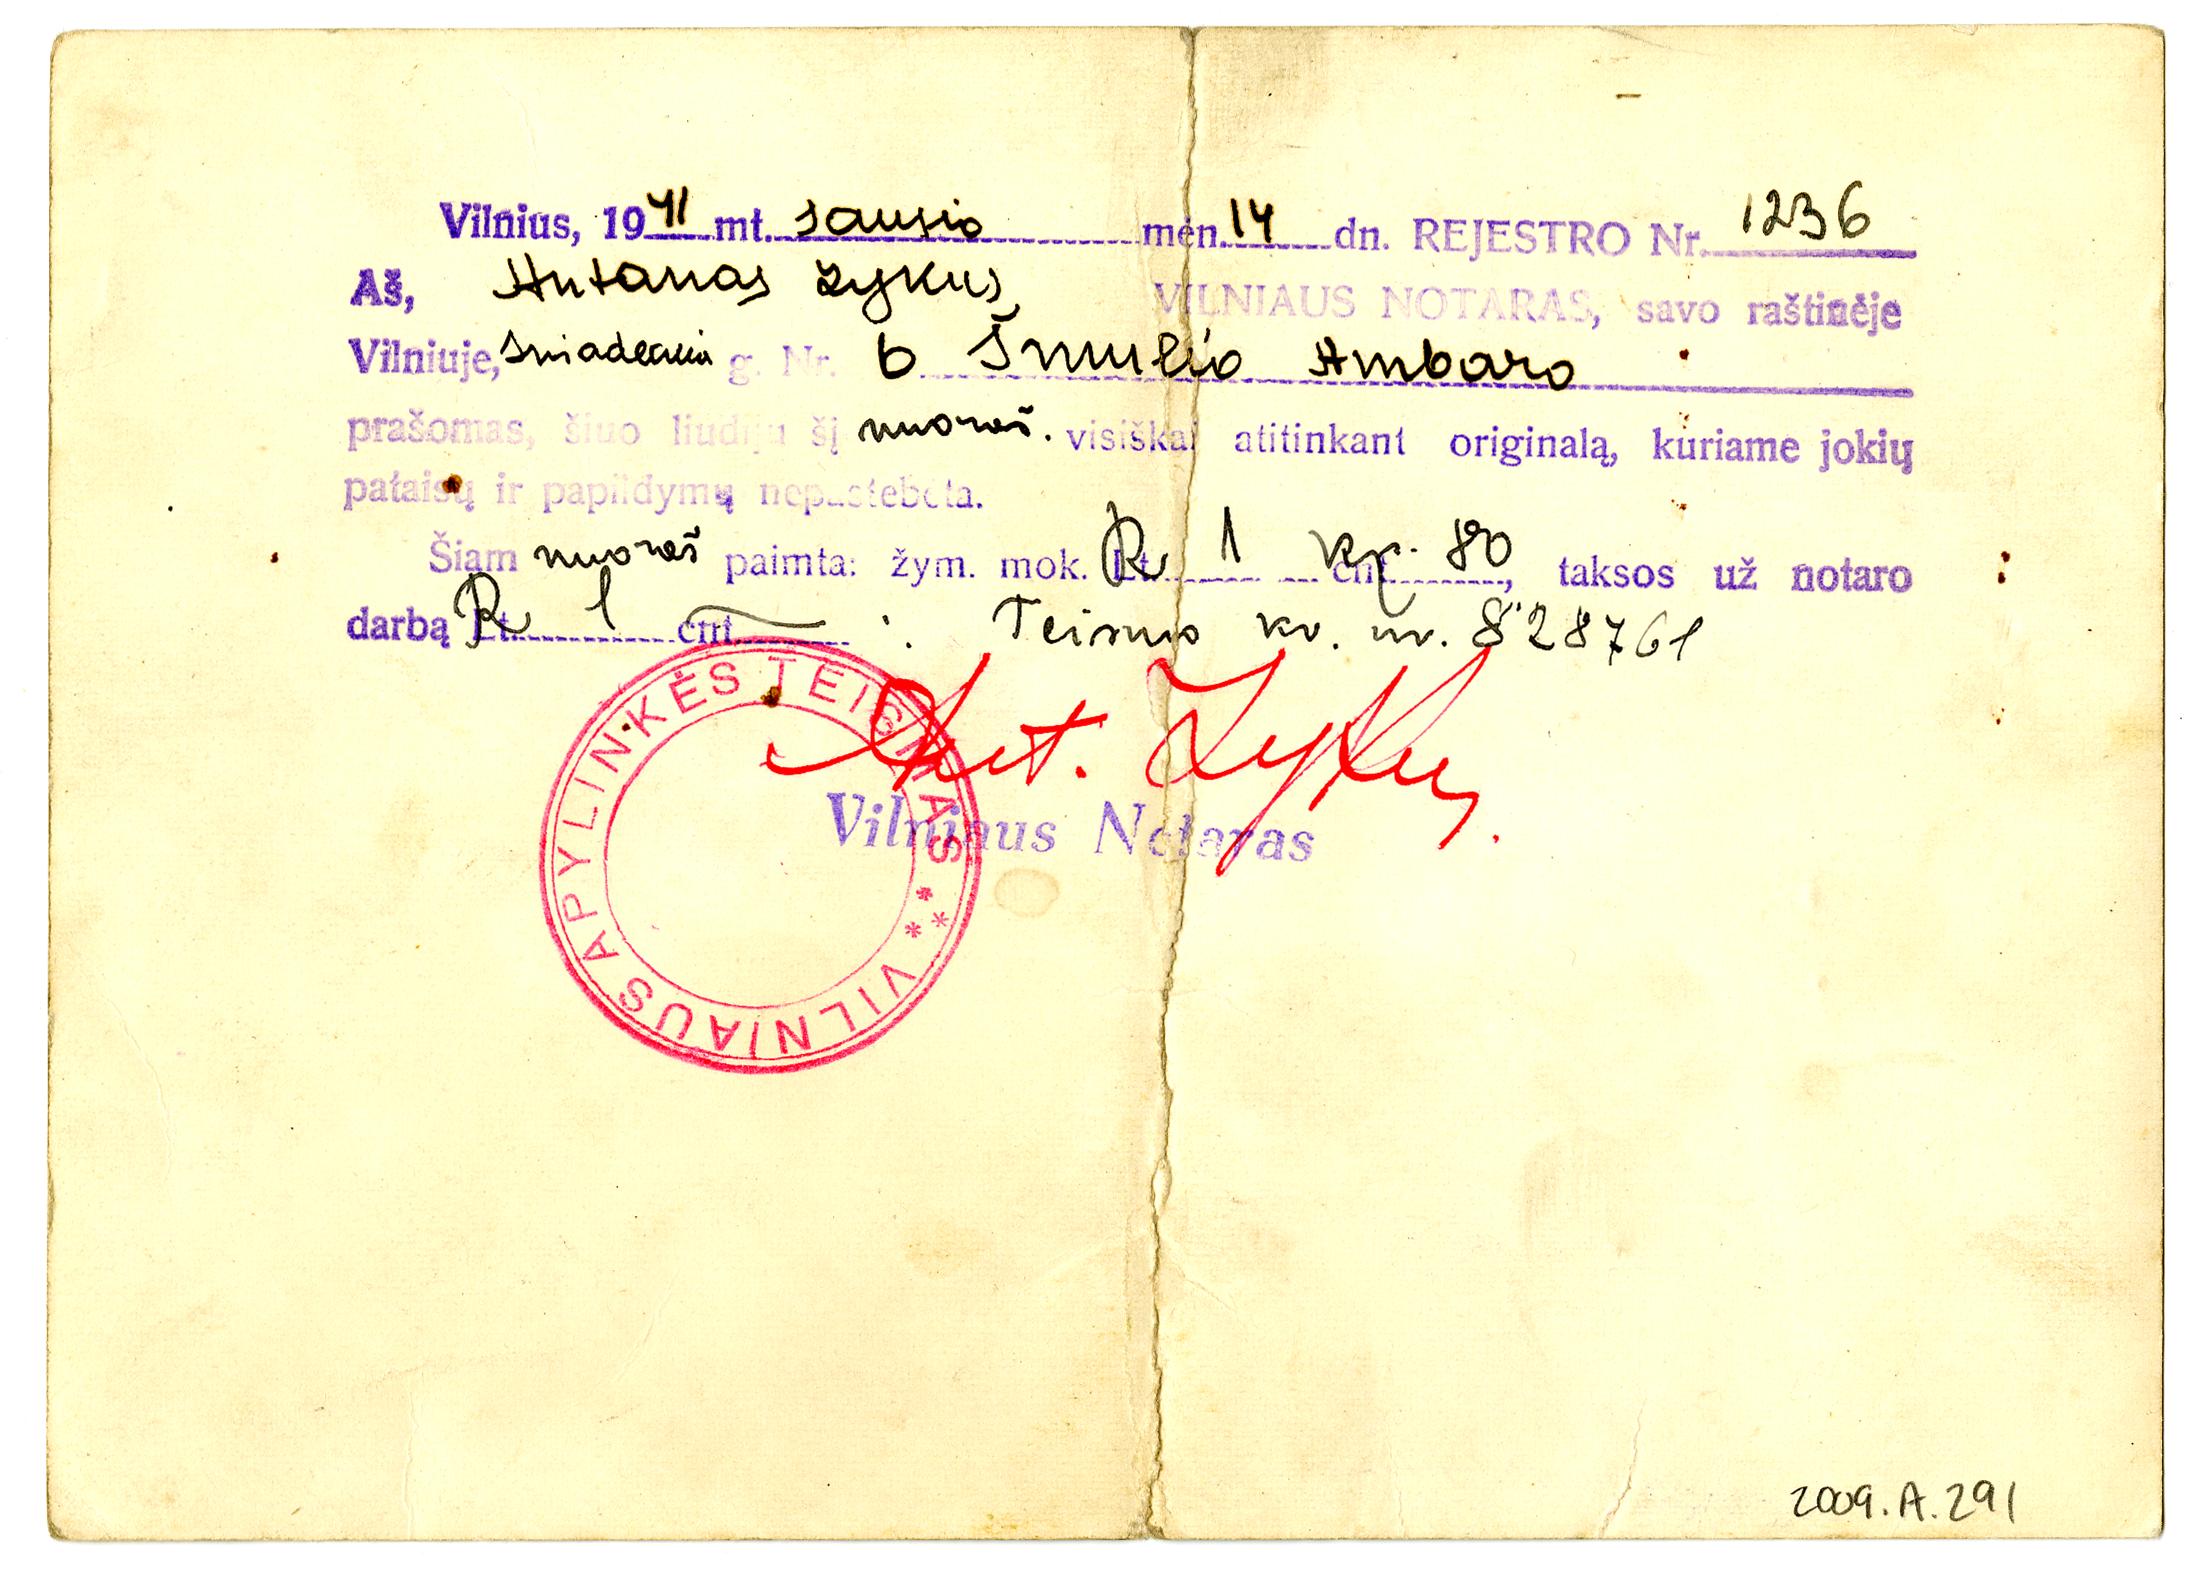 Vilnius, 1941 mt. sausio mėn. 14 dn. REJESTRO Nr. 1236
Aš, Antanas Zykus, VILNIAUS NOTARAS, savo raštinėje
Vilniuje, g. Nr. 6 Šmulio Ambaro
prašomas, šiuo liudiju šį nuoraš. visiškai atitinkant originalą, kuriame jokių
pataisų ir papildymų nepastebėta.
Šiam nuoraš paimta: žym. mok. Lt. R 1 cnt. kp. 80, taksos už notaro
darbą Lt. R 1 cnt. — . Teismo kv. nr. 828761
Ant. Zykus
Vilniaus Notaras
VILNIAUS APYLINKĖS TEISMAS ***
2009.A.291